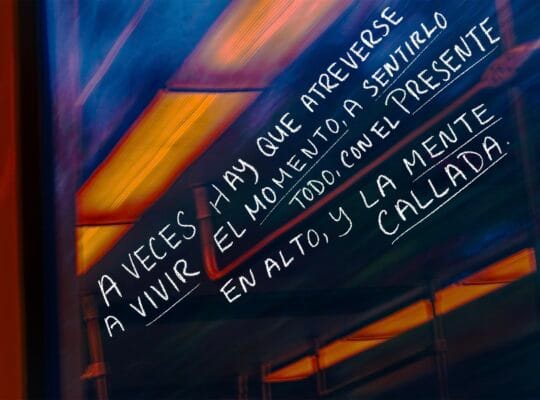 A VECES HAY QUE ATREVERSE
A VIVIR EL MOMENTO, A SENTIRLO
TODO, CON EL PRESENTE
EN ALTO, Y LA MENTE
CALLADA.